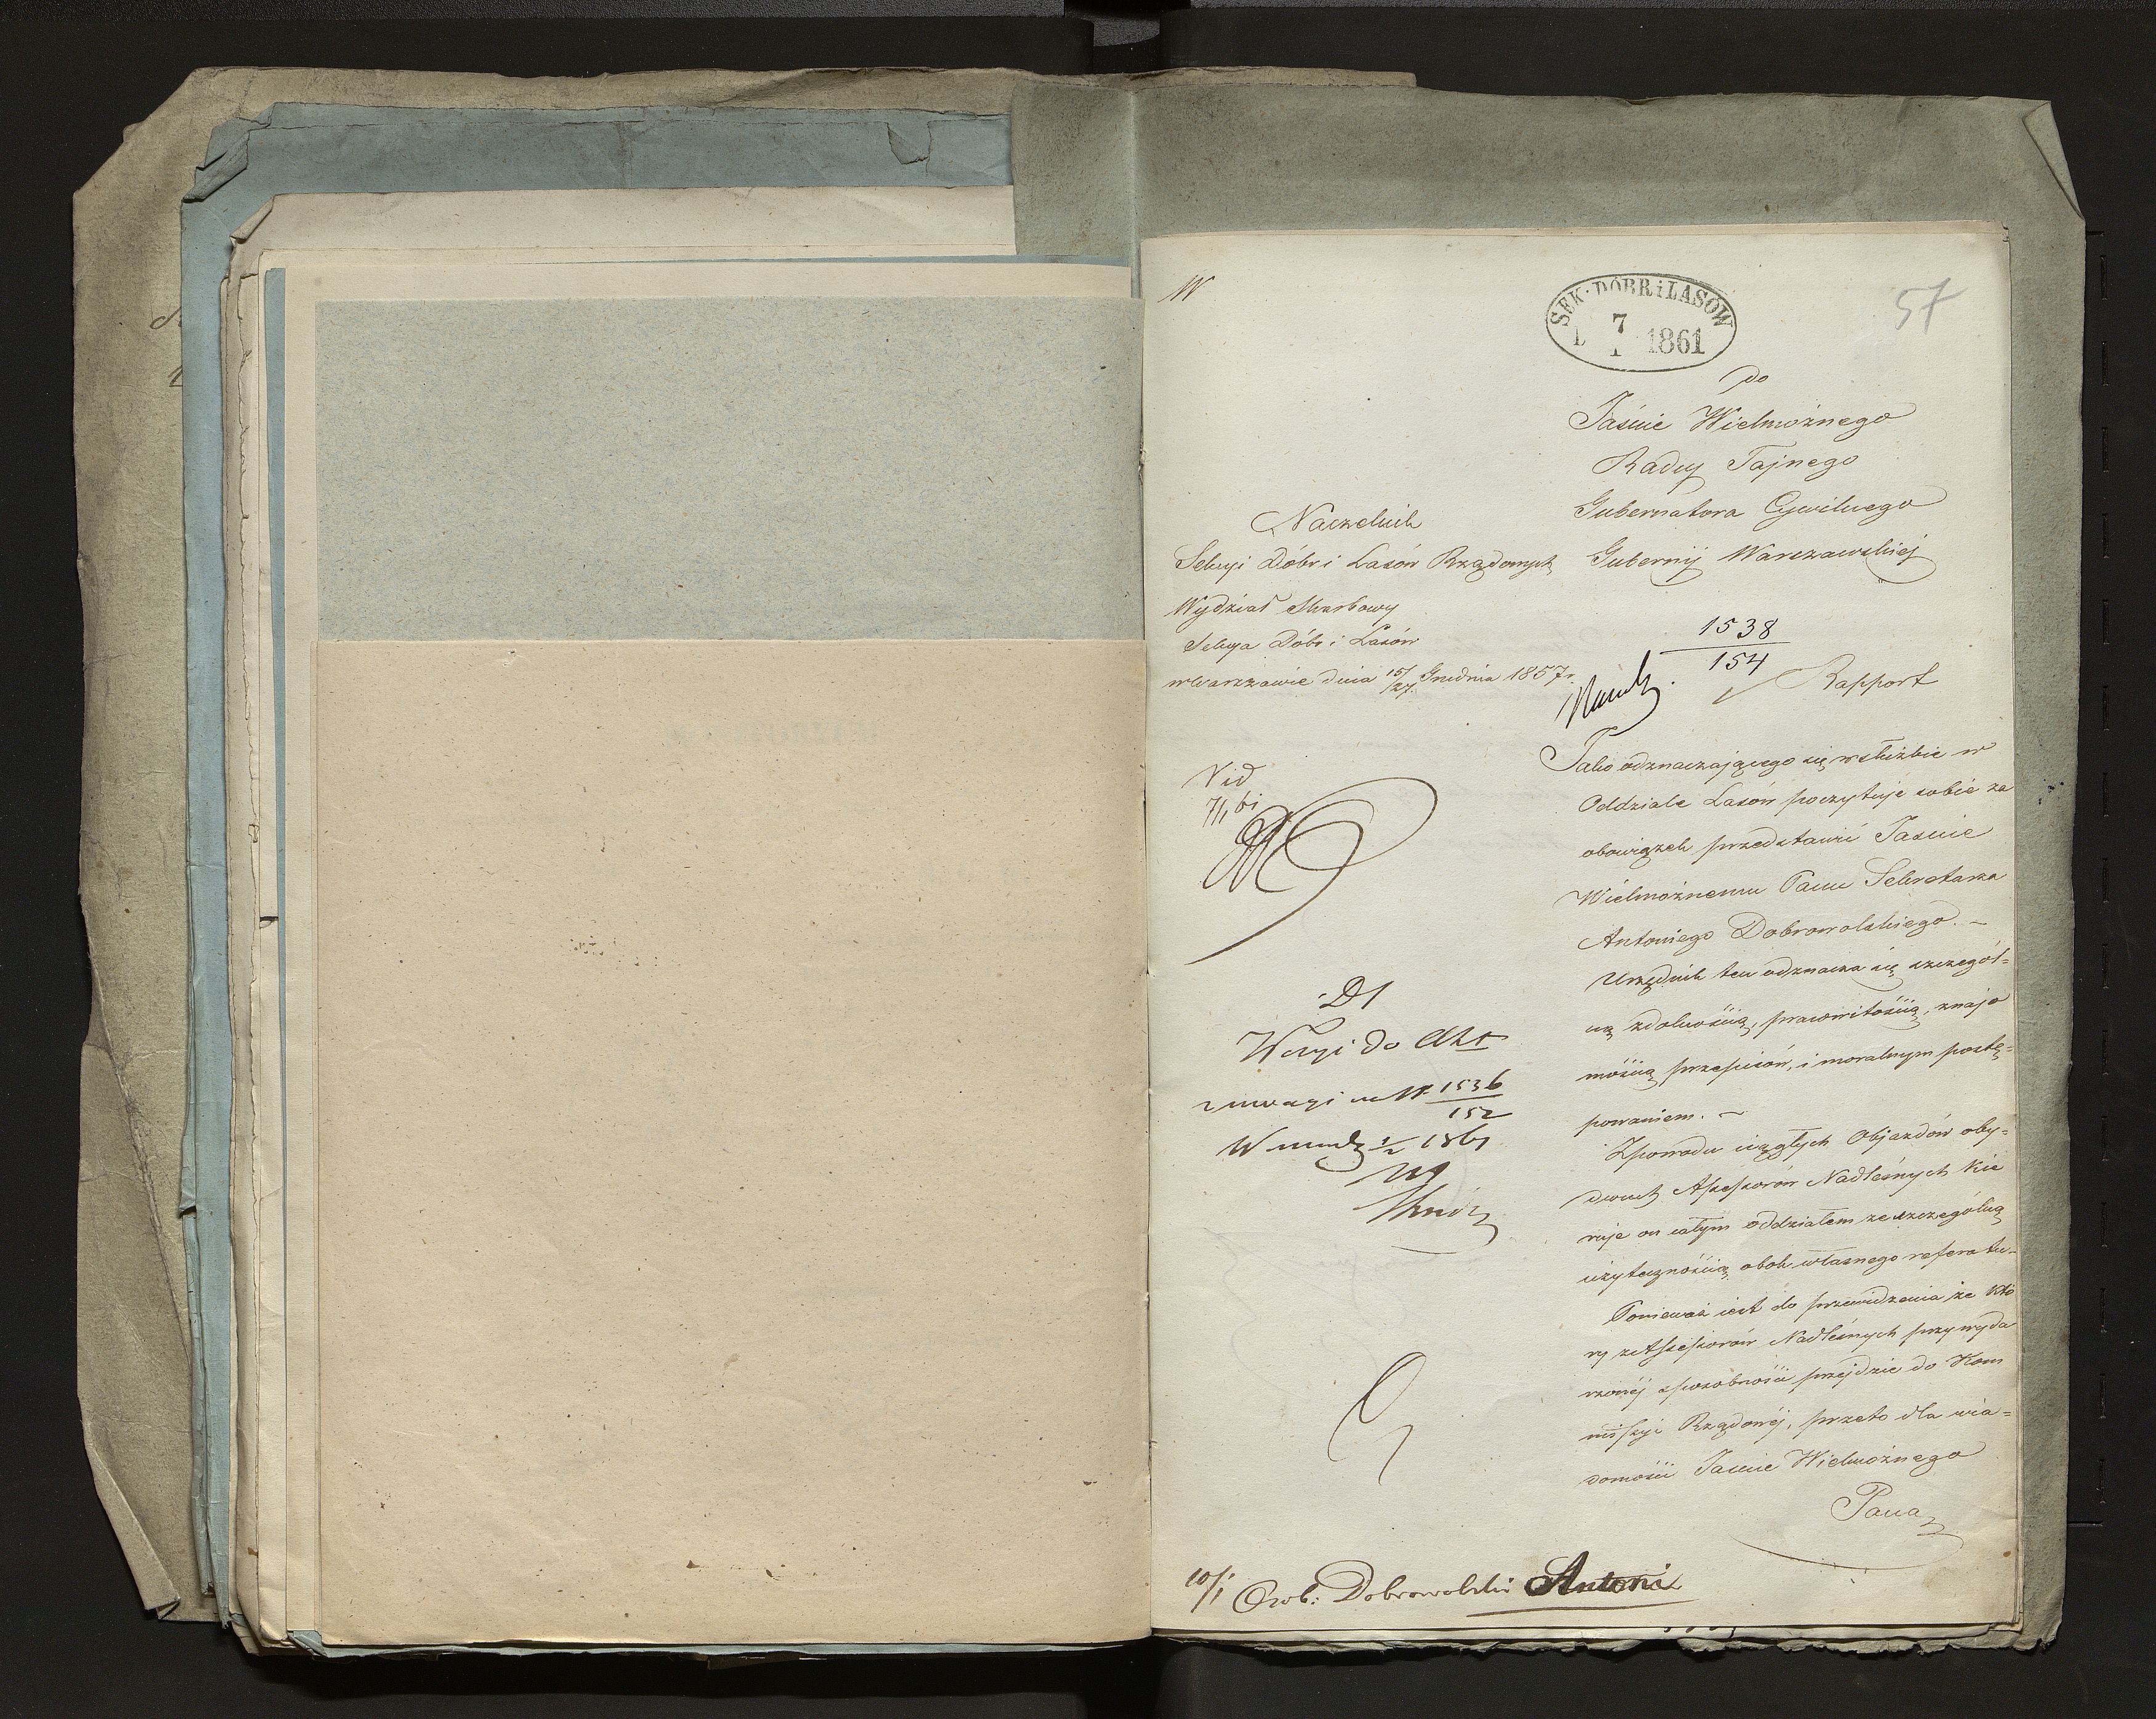 W
SEK. DÓBR i LASÓW
7
1 1861
57
do
Jaśnie Wielmożnego
Radcy Tajnego
Gubernatora Cywilnego
Gubernij Warszawskiej
Naczelnik
Sekcyi Dóbr i Lasów Rządowych
Wydział Skarbowy
Sekcya Dóbr i Lasów
w Warszawie dnia 15/27 Grudnia 1857 r.
1538
154
Rapport
Jako odznaczającego się w służbie w
Oddziale Lasów poczytuję sobie za
obowiązek przedstawić Jaśnie
Wielmożnemu Panu Sekretarza
Antoniego Dobrowolskiego. –
Urzędnik ten odznacza się szczegól=
ną zdolnością, pracowitością, znajo
mością przepisów, i moralnym postę=
powaniem. –
Z powodu ciągłych Objazdów oby=
dwuch Assessorów Nadleśnych kie
ruje on całym oddziałem ze szczególną
użytecznością obok własnego referatu.
Ponieważ jest do przewidzenia że któ
ry z Assessorów Nadleśnych przy wyda
rzonéj sposobności przejdzie do Kom
missyi Rządowéj, przeto dla wia=
domości Jaśnie Wielmożnego
Pana
Vid
7/1 61
D1
do Akt
1536
152
10/1 Osob: Dobrowolski Antoni